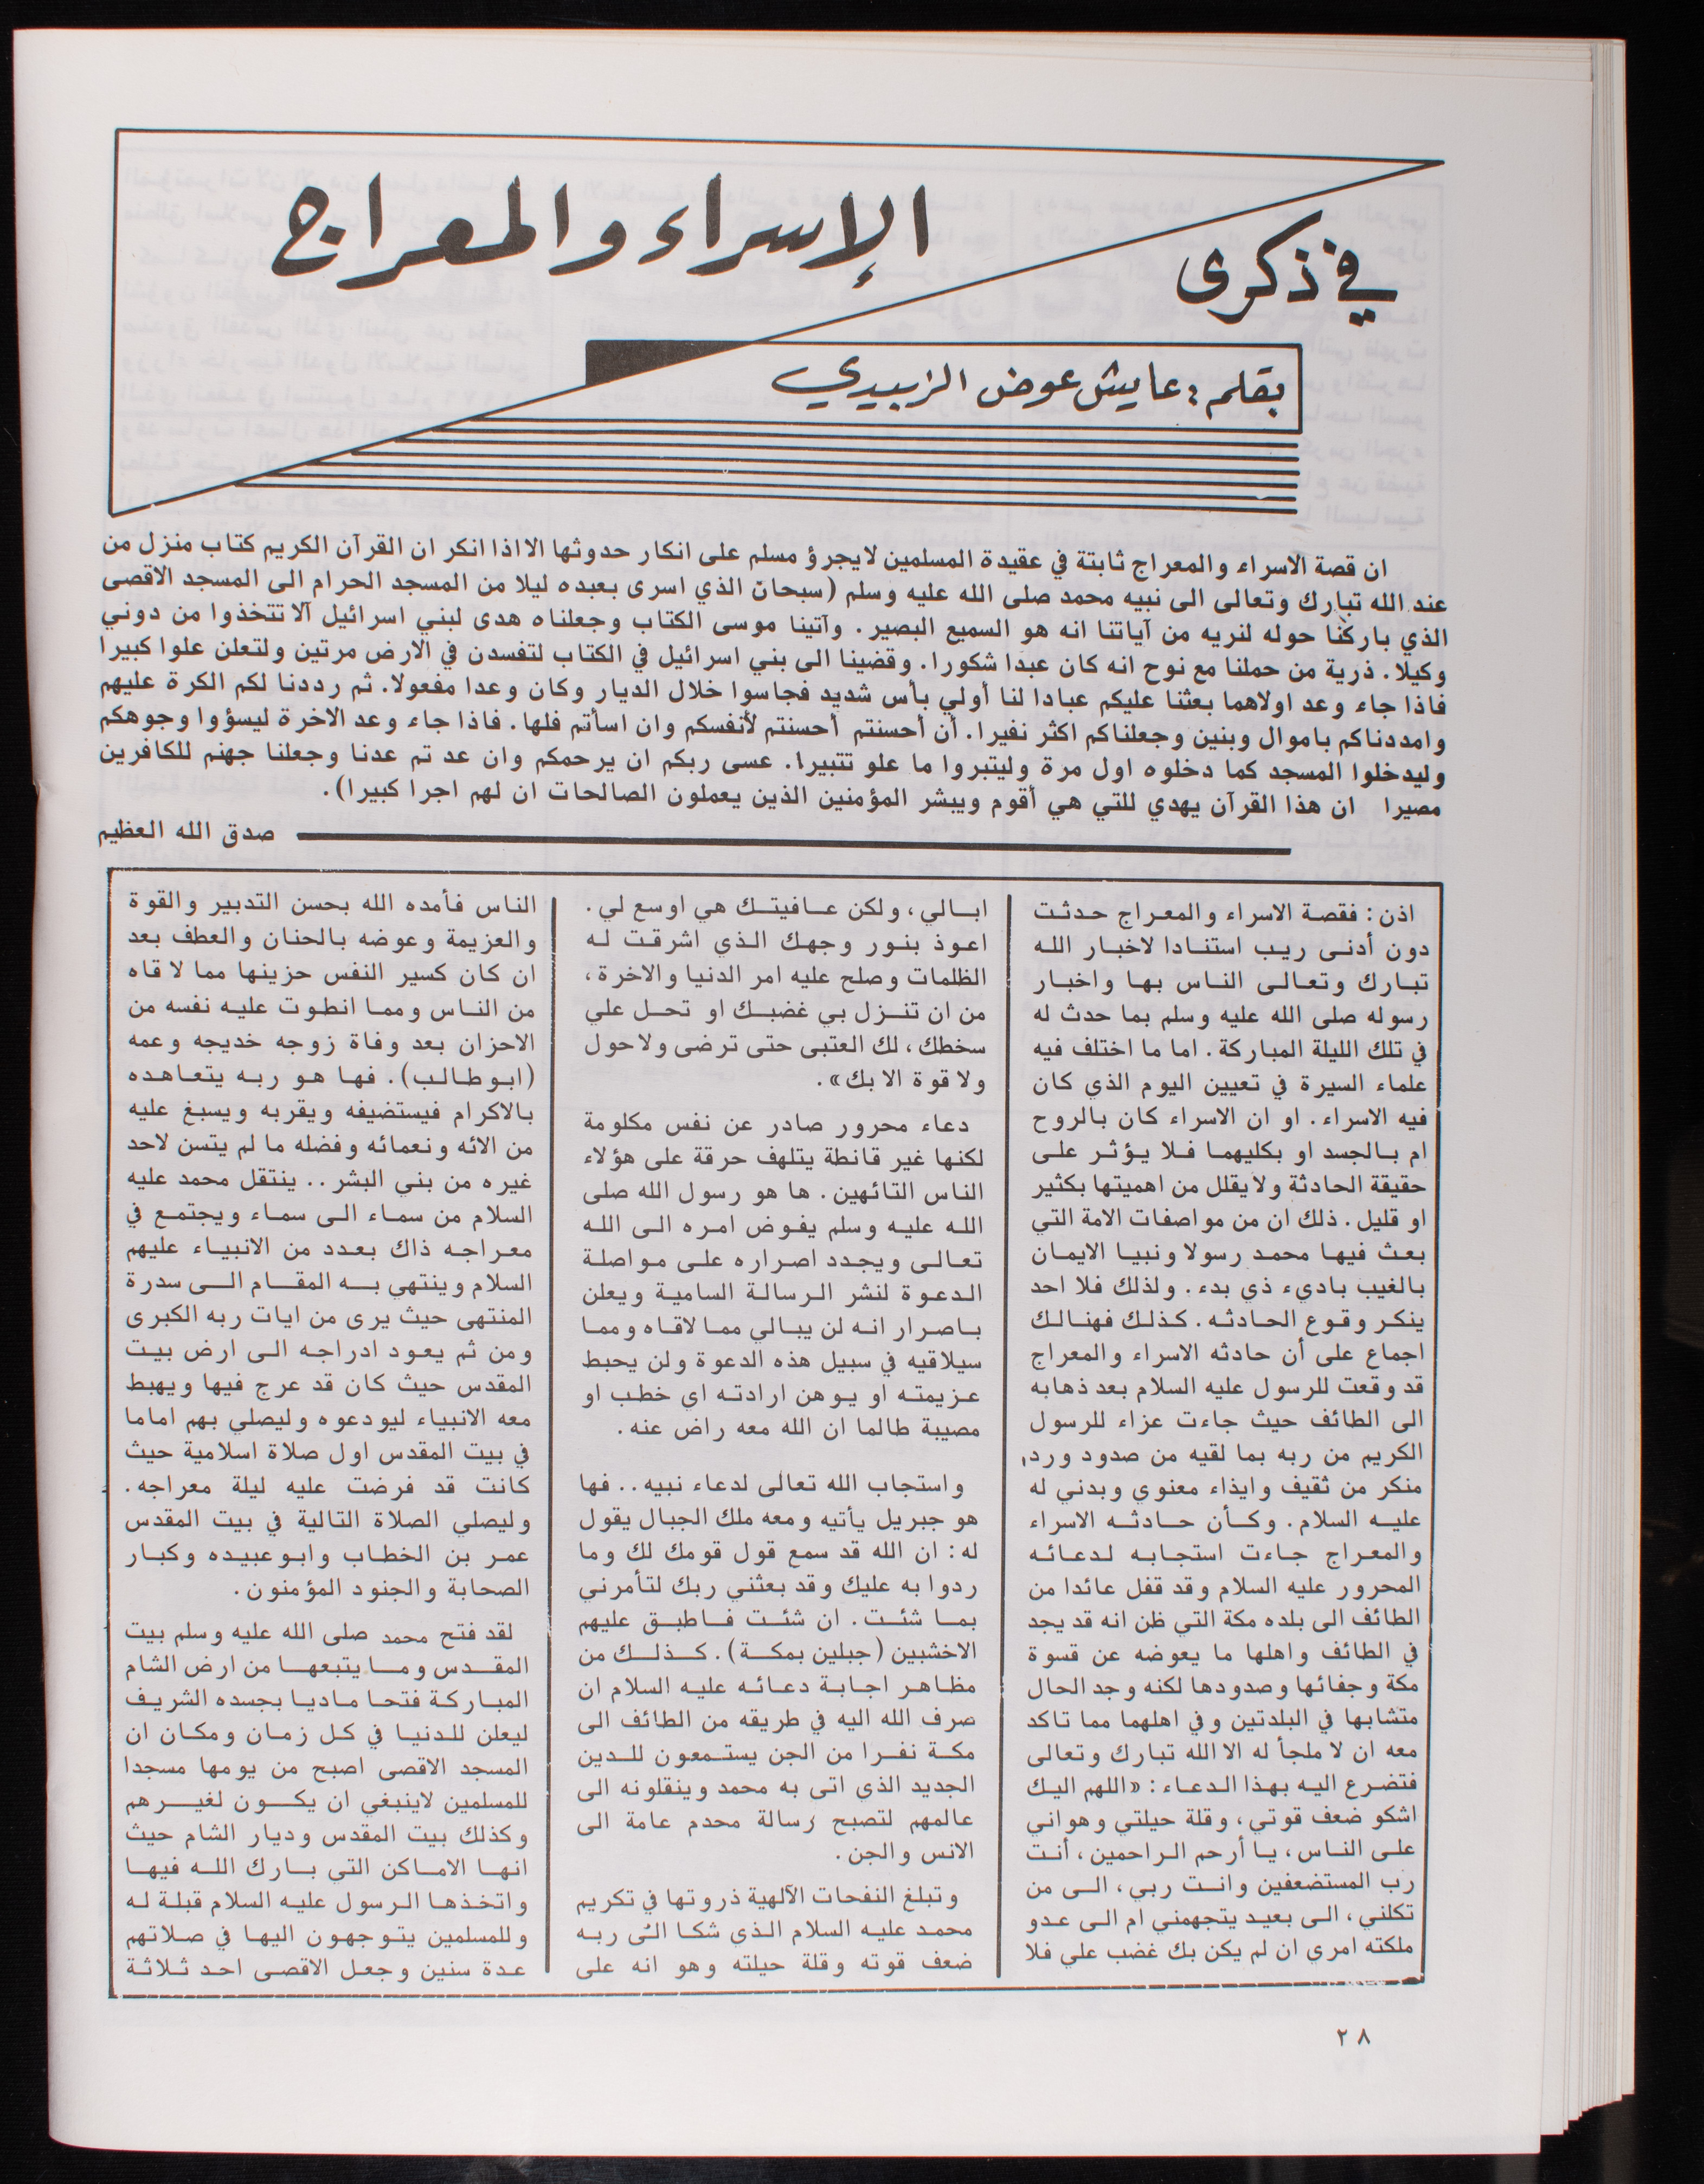 في ذكرى
الإسراء والمعراج
بقلم : عايش عوض الزبيدي
ان قصة الاسراء والمعراج ثابتة في عقيدة المسلمين لايجرؤ مسلم على انكار حدوثها الا اذا انكر ان القرآن الكريم كتاب منزل من
عند الله تبارك وتعالى الى نبيه محمد صلى الله عليه وسلم (سبحان الذي اسرى بعبده ليلا من المسجد الحرام الى المسجد الاقصى
الذي باركنا حوله لنريه من آياتنا انه هو السميع البصير. وآتينا موسى الكتاب وجعلناه هدى لبني اسرائيل ألا تتخذوا من دوني
وكيلا. ذرية من حملنا مع نوح انه كان عبدا شكورا. وقضينا الى بني اسرائيل في الكتاب لتفسدن في الارض مرتين ولتعلن علوا كبيرا
فاذا جاء وعد اولاهما بعثنا عليكم عبادا لنا أولي بأس شديد فجاسوا خلال الديار وكان وعدا مفعولا. ثم رددنا لكم الكرة عليهم
وامددناكم باموال وبنين وجعلناكم اكثر نفيرا. أن أحسنتم أحسنتم لأنفسكم وان اسأتم فلها. فاذا جاء وعد الاخرة ليسؤوا وجوهكم
وليدخلوا المسجد كما دخلوه اول مرة وليتبروا ما علو تتبيرا. عسى ربكم ان يرحمكم وان عد تم عدنا وجعلنا جهنم للكافرين
مصيرا ان هذا القرآن يهدي للتي هي أقوم ويبشر المؤمنين الذين يعملون الصالحات ان لهم اجرا كبيرا).
صدق الله العظيم
اذن : فقصة الاسراء والمعراج حدثت
دون أدنى ريب استنادا لاخبار الله
تبارك وتعالى الناس بها واخبار
رسوله صلى الله عليه وسلم بما حدث له
في تلك الليلة المباركة. اما ما اختلف فيه
علماء السيرة في تعيين اليوم الذي كان
فيه الاسراء. او ان الاسراء كان بالروح
ام بالجسد او بكليهما فلا يؤثر على
حقيقة الحادثة ولا يقلل من اهميتها بكثير
او قليل. ذلك ان من مواصفات الامة التي
بعث فيها محمد رسولا ونبيا الايمان
بالغيب باديء ذي بدء. ولذلك فلا احد
ينكر وقوع الحادثه. كذلك فهنالك
اجماع على أن حادثه الاسراء والمعراج
قد وقعت للرسول عليه السلام بعد ذهابه
الى الطائف حيث جاءت عزاء للرسول
الكريم من ربه بما لقيه من صدود ورد،
منكر من ثقيف وايذاء معنوي وبدني له
عليه السلام. وكأن حادثه الاسراء
والمعراج جاءت استجابه لدعائه
المحرور عليه السلام وقد قفل عائدا من
الطائف الى بلده مكة التي ظن انه قد يجد
في الطائف واهلها ما يعوضه عن قسوة
مكة وجفائها وصدودها لكنه وجد الحال
متشابها في البلدتين وفي اهلهما مما تاكد
معه ان لا ملجأ له الا الله تبارك وتعالى
فتضرع اليه بهذا الدعاء : «اللهم اليك
اشكو ضعف قوتي، وقلة حيلتي وهواني
على الناس، يا أرحم الراحمين، أنت
رب المستضعفين وانت ربي، الى من
تكلني، الى بعيد يتجهمني ام الى عدو
ملكته امري ان لم يكن بك غضب علي فلا
ابالي، ولكن عافيتك هي اوسع لي.
اعوذ بنور وجهك الذي اشرقت له
الظلمات وصلح عليه امر الدنيا والاخرة،
من ان تنزل بي غضبك او تحل علي
سخطك، لك العتبى حتى ترضى ولا حول
ولا قوة الا بك».
دعاء محرور صادر عن نفس مكلومة
لكنها غير قانطة يتلهف حرقة على هؤلاء
الناس التائهين. ها هو رسول الله صلى
الله عليه وسلم يفوض امره الى الله
تعالى ويجدد اصراره على مواصلة
الدعوة لنشر الرسالة السامية ويعلن
باصرار انه لن يبالي مما لاقاه ومما
سيلاقيه في سبيل هذه الدعوة ولن يحبط
عزيمته او يوهن ارادته اي خطب او
مصيبة طالما ان الله معه راض عنه.
واستجاب الله تعالى لدعاء نبيه .. فها
هو جبريل يأتيه ومعه ملك الجبال يقول
له : ان الله قد سمع قول قومك لك وما
ردوا به عليك وقد بعثني ربك لتأمرني
بما شئت. ان شئت فاطبق عليهم
الاخشبين (جبلين بمكة). كذلك من
مظاهر اجابة دعائه عليه السلام ان
صرف الله اليه في طريقه من الطائف الى
مكة نفرا من الجن يستمعون للدين
الجديد الذي اتى به محمد وينقلونه الى
عالمهم لتصبح رسالة محدم عامة الى
الانس والجن.
وتبلغ النفحات الآلهية ذروتها في تكريم
محمد عليه السلام الذي شكا الى ربه
ضعف قوته وقلة حيلته وهو انه على
الناس فأمده الله بحسن التدبير والقوة
والعزيمة وعوضه بالحنان والعطف بعد
ان كان كسير النفس حزينها مما لاقاه
من الناس ومما انطوت عليه نفسه من
الاحزان بعد وفاة زوجه خديجه وعمه
(ابوطالب). فها هو ربه يتعاهده
بالاكرام فيستضيفه ويقربه ويسبغ عليه
من الائه ونعمائه وفضله ما لم يتسن لاحد
غيره من بني البشر .. ينتقل محمد عليه
السلام من سماء الى سماء ويجتمع في
معراجه ذاك بعدد من الانبياء عليهم
السلام وينتهي به المقام الى سدرة
المنتهى حيث يرى من ايات ربه الكبرى
ومن ثم يعود ادراجه الى ارض بيت
المقدس حيث كان قد عرج فيها ويهبط
معه الانبياء ليودعوه وليصلي بهم اماما
في بيت المقدس اول صلاة اسلامية حيث
كانت قد فرضت عليه ليلة معراجه.
وليصلي الصلاة التالية في بيت المقدس
عمر بن الخطاب وابو عبيده وكبار
الصحابة والجنود المؤمنون.
لقد فتح محمد صلى الله عليه وسلم بيت
المقدس وما يتبعها من ارض الشام
المباركة فتحا ماديا بجسده الشريف
ليعلن للدنيا في كل زمان ومكان ان
المسجد الاقصى اصبح من يومها مسجدا
للمسلمين لاينبغي ان يكون لغيرهم
وكذلك بيت المقدس وديار الشام حيث
انها الاماكن التي بارك الله فيها
واتخذها الرسول عليه السلام قبلة له
وللمسلمين يتوجهون اليها في صلاتهم
عدة سنين وجعل الاقصى احد ثلاثة
٢٨